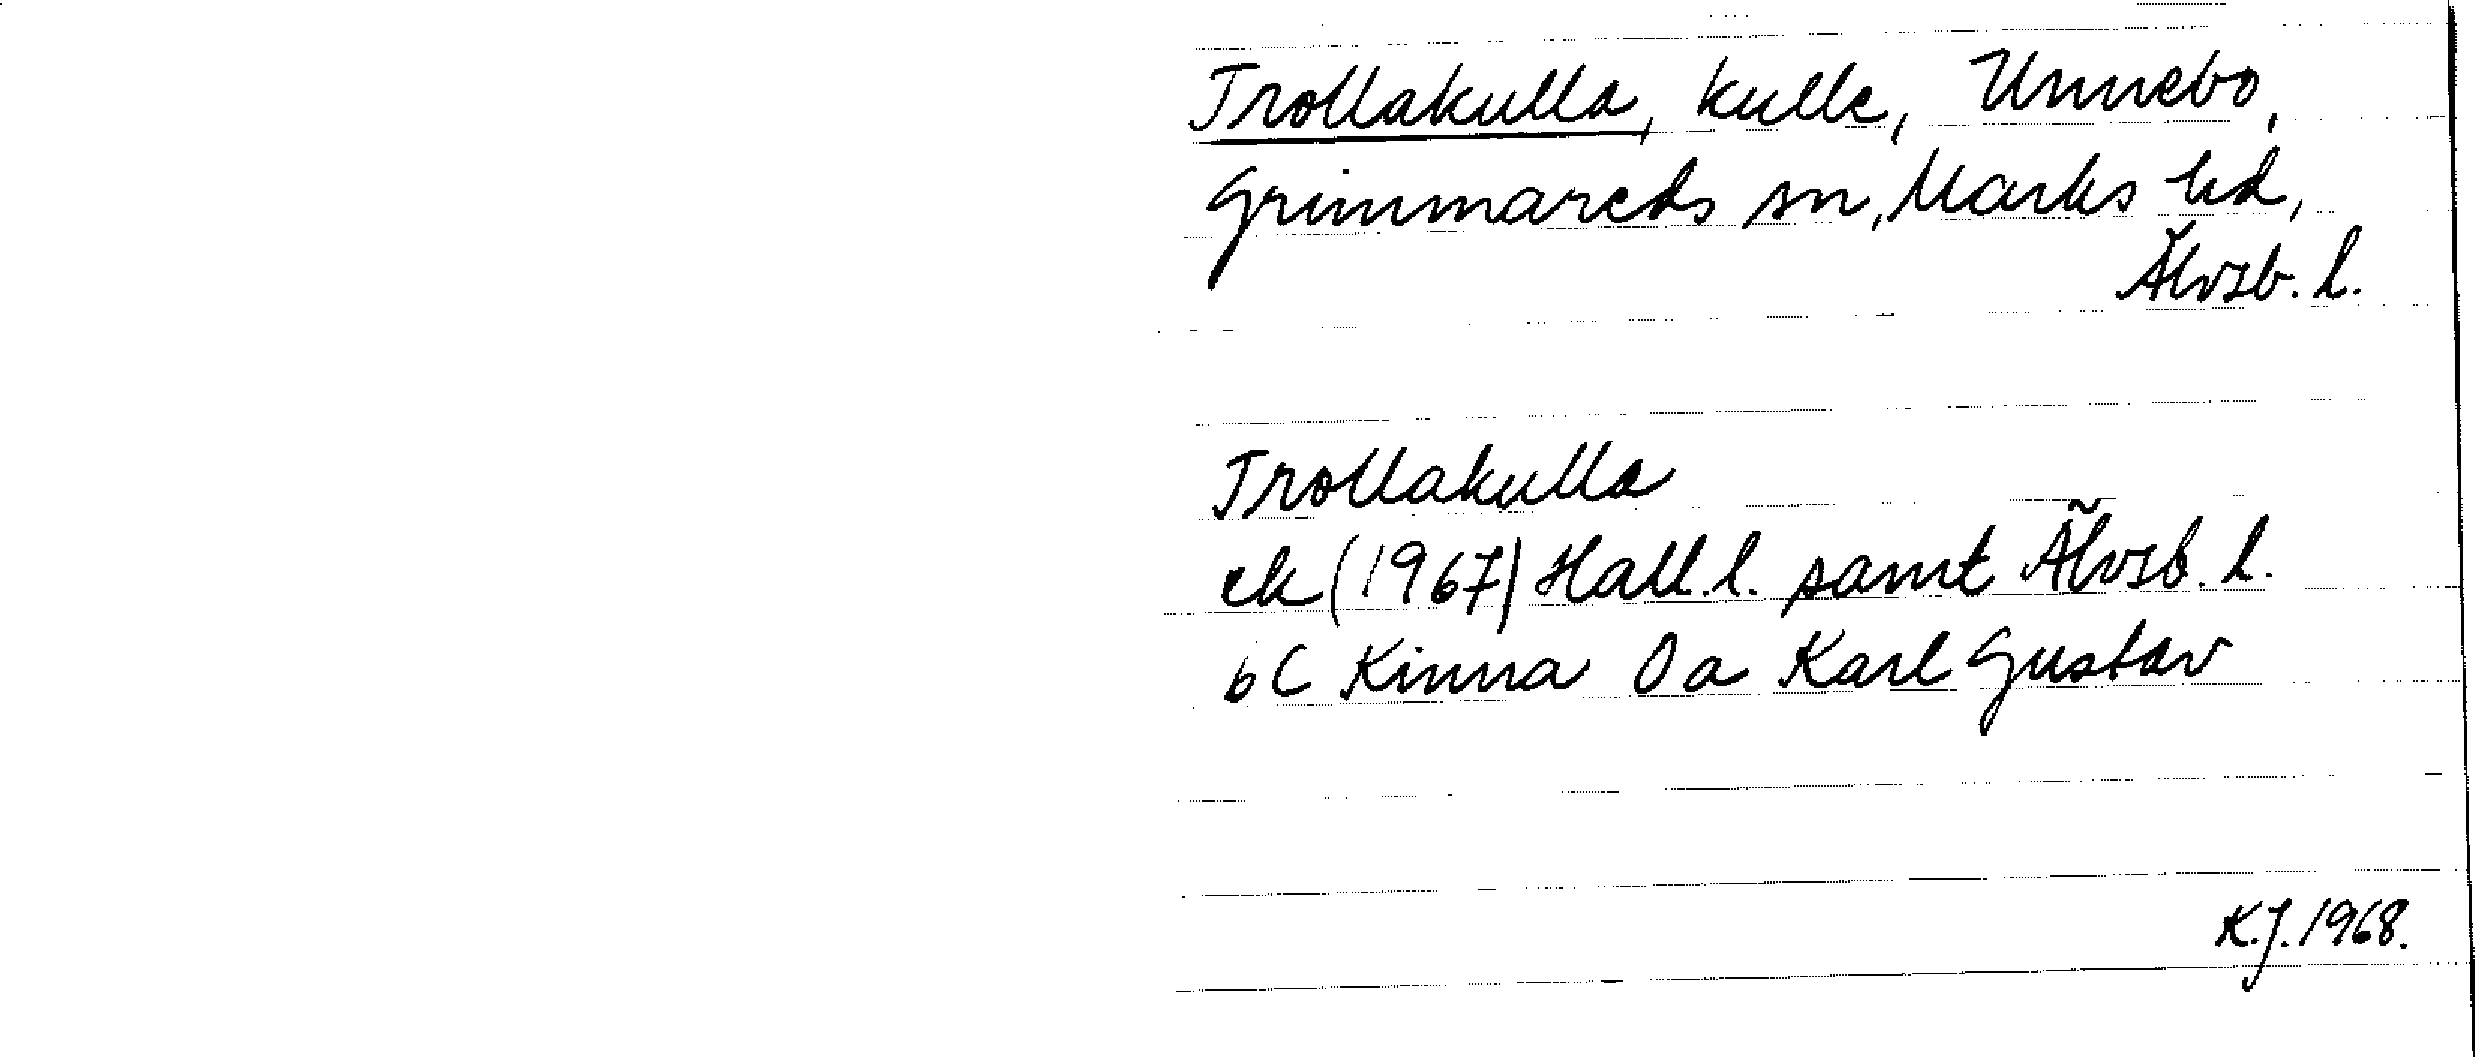 Trollakulla, kulle, Unnebo,
Grimmareds sn, Marks hd,
Älvsb. l.
Trollakulla
ek (1967) Hall. l. samt Älvsb. l.
6C Kinna Oa Karl Gustav
K.J. 1968.